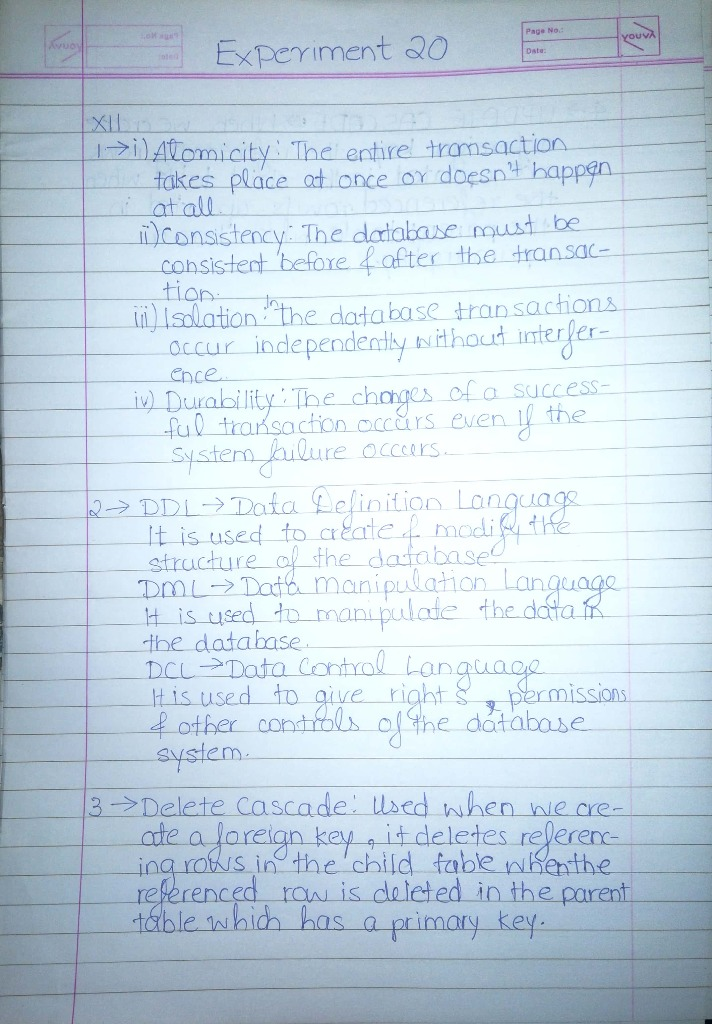 Experiment 20
Page No.:
Date:
YOUVA
XII
1→i) Atomicity: The entire transaction
takes place at once or doesn't happen
at all.
ii) Consistency: The database must be
consistent before & after the transac-
tion.
iii) Isolation: In the database transactions
occur independently without interfer-
ence.
iv) Durability: The changes of a success-
ful transaction occurs even if the
system failure occurs.
2→ DDL → Data Definition Language
It is used to create & modify the
structure of the database.
DML → Data Manipulation Language
It is used to manipulate the data in
the database.
DCL → Data Control Language
It is used to give rights, permissions
& other controls of the database
system.
3 → Delete Cascade: Used when we cre-
ate a foreign key, it deletes referenc-
ing rows in the child table when the
referenced row is deleted in the parent
table which has a primary key.